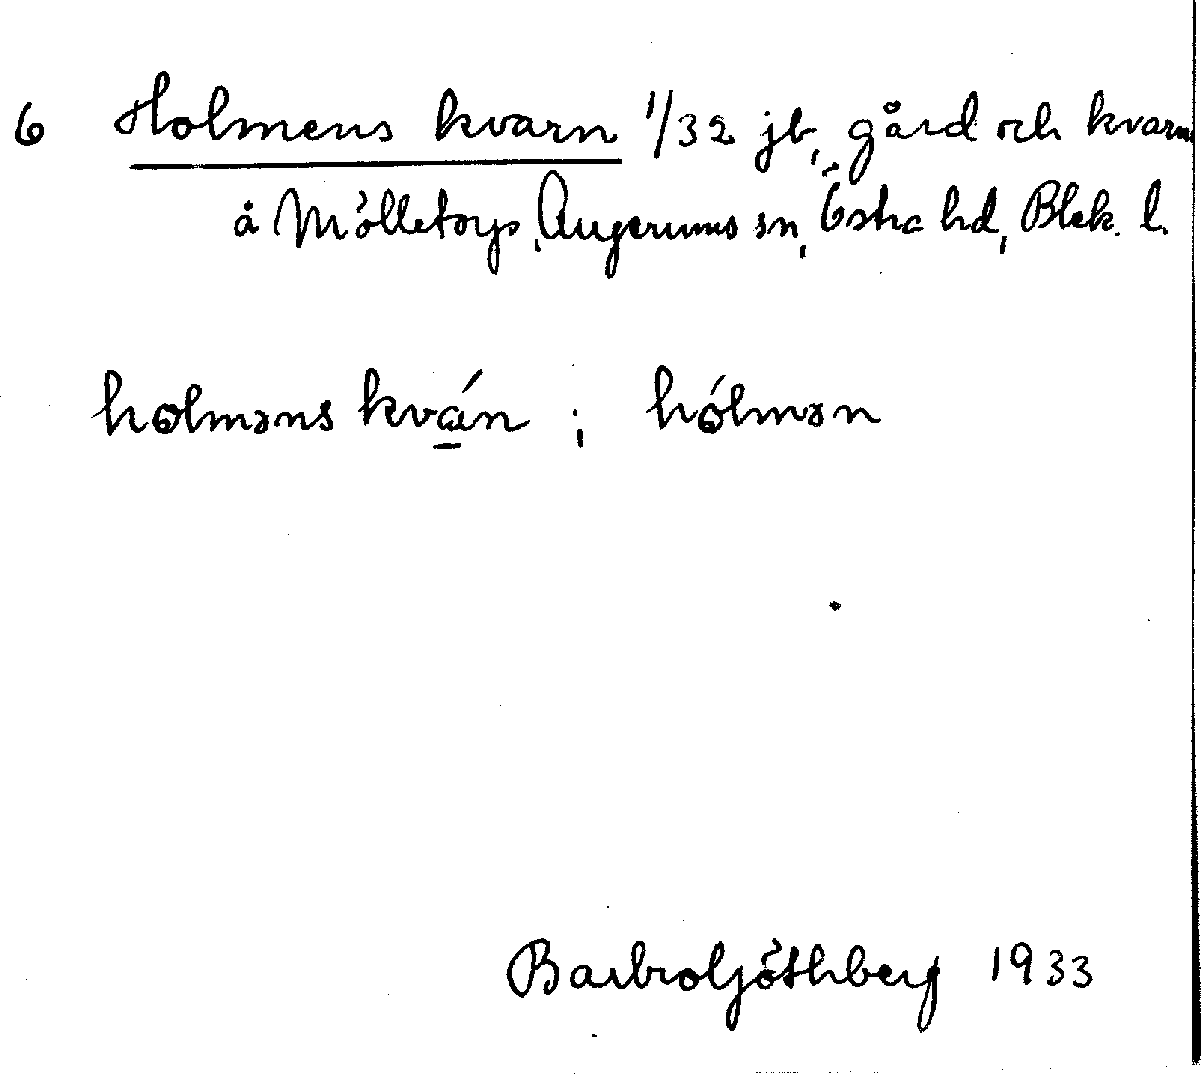 6 Holmens kvarn 1/32 jb, gård och kvarn
å Mölletorp, Augerums sn, Östra hd, Blek. l.
holməns kván ; hólmən
Barbro Göthberg 1933